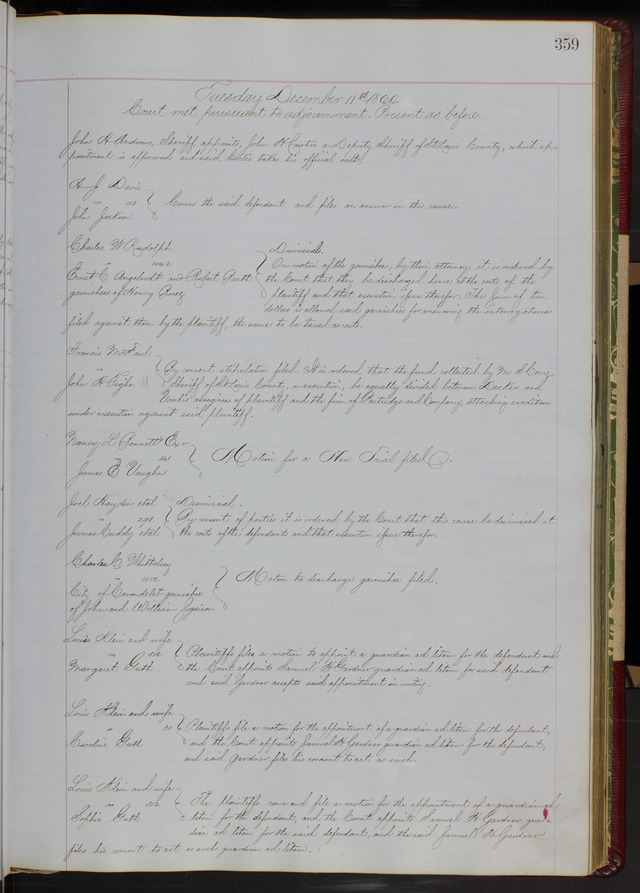 359
Tuesday December 11th 1860.
Court met pursuant to adjournment. Present as before.
John H Andrews, Sheriff appoints, John H Curtis a Deputy Sheriff of St Louis County, which ap-
pointment is approved and said Curtis takes his official oath.
A J Davis
" Comes the said defendant and files an answer in this cause.
John Jackson
Charles W Rudolph Dismissal.
" On motion of the garnishees, by their attorney, it is ordered by
Ernst C Angelrodt and Robert Barth the Court that they be discharged hence at the costs of the
garnishees of Henry plaintiff and that execution issue therefor. The sum of ten
dollars is allowed said garnishees for answering the interrogatories
filed against them by the plaintiff, the same to be taxed as costs.
Francis McFaul
" By consent stipulation filed. It is ordered that the fund collected by M S Cerre
John H Tighe 11 Sheriff of St Louis County, on execution, be equally divided between Decker and
assignees of plaintiff and the firm of Partridge and Company, attaching creditors
under execution against said plaintiff.
Nancy L Bennett Exr
141 Motion for a New Trial filed.
James E Vaughn
Joel Hayden etal Dismissal.
" 290 By consent of parties it is ordered by the Court that this cause be dismissed at
James Cuddy etal the costs of the defendants and that execution issue therefor.
Charles C Whittelsey
" Motion to discharge garnishee filed.
City of Carondelet garnishee
of John and William
Louis Klein and wife
" Plaintiffs files a motion to appoint a guardian ad litem for the defendant and
Margaret Guth the Court appoints Samuel H Gardner guardian ad litem for said defendant
and said Gardner accepts said appointment in writing.
Louis Klein and wife
" Plaintiffs file a motion for the appointment of a guardian ad litem for the defendant,
Caroline Guth and the Court appoints Samuel H Gardner guardian ad litem for the defendant,
and said Gardner files his consent to act as such.
Louis Klein and wife
" The plaintiffs come and file a motion for the appointment of a guardian ad
Sophie Guth litem for the defendant, and the Court appoints Samuel H Gardner guar-
dian ad litem for the said defendant, and the said Samuel H Gardner
files his consent to act as such guardian ad litem.